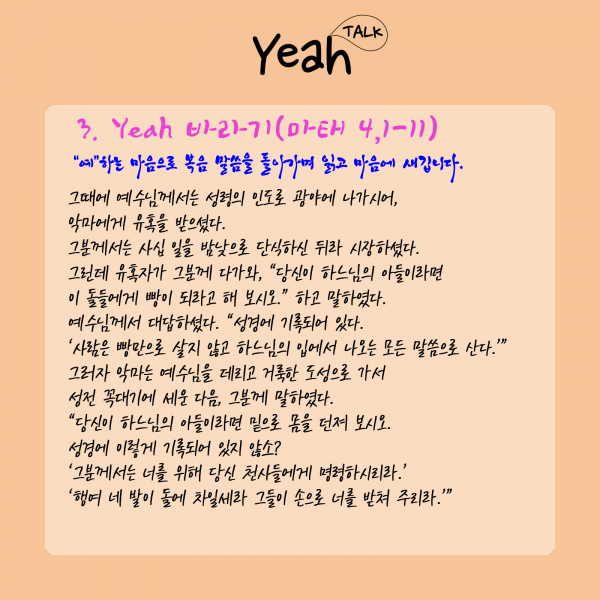 Yeah TALK
3. Yeah 바라기(마태 4,1-11)
"예"하는 마음으로 복음 말씀을 돌아가며 읽고 마음에 새깁니다.
그때에 예수님께서는 성령의 인도로 광야에 나가시어,
악마에게 유혹을 받으셨다.
그분께서는 사십 일을 밤낮으로 단식하신 뒤라 시장하셨다.
그런데 유혹자가 그분께 다가와, “당신이 하느님의 아들이라면
이 돌들에게 빵이 되라고 해 보시오.” 하고 말하였다.
예수님께서 대답하셨다. “성경에 기록되어 있다.
‘사람은 빵만으로 살지 않고 하느님의 입에서 나오는 모든 말씀으로 산다.’”
그러자 악마는 예수님을 데리고 거룩한 도성으로 가서
성전 꼭대기에 세운 다음, 그분께 말하였다.
“당신이 하느님의 아들이라면 밑으로 몸을 던져 보시오.
성경에 이렇게 기록되어 있지 않소?
‘그분께서는 너를 위해 당신 천사들에게 명령하시리라.’
‘행여 네 발이 돌에 차일세라 그들이 손으로 너를 받쳐 주리라.’”